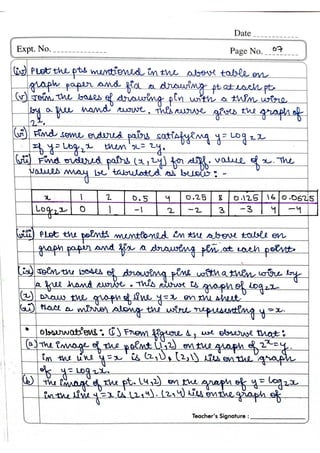 Date
Expt. No.
Page No. 07
(iv) Plot the pts mentioned in the above table on
graph paper and fix a drawing pt at each pt.
(v) Join the bases of drawing pin with a thin wire
by a free hand curve. This curve gives the graph of
2ˣ.
(vi) Find some ordered pairs satisfying y = Log₂x
If y = Log₂x then x = 2y.
(vii) Find ordered pairs (x, 2y) for diff. value of x. The
values may be tabulated as below : -
x 1 2 0.5 4 0.25 8 0.125 16 0.0625
Log₂x 0 1 -1 2 -2 3 -3 4 -4
(viii) Plot the points mentioned in the above table on
graph paper and fix a drawing pin at each point.
(ix) Join the bases of drawing pins with a thin wire by
a free hand curve. This curve is graph of log₂x
(x) Draw the graph of line y = x on the sheet
(xi) Place a mirror along the wire representing y = x.
* Observations : (i) From figure 8, we observe that :
(a) The image of the point (1,2) on the graph of 2ˣ=y
in the line y=x is (2,1) & (2,1) lies on the graph
of y = log₂x.
(b) The image of the pt. (4,2) on the graph of y = log₂x
in the line y=x is (2,4). (2,4) lies on the graph of
Teacher's Signature :